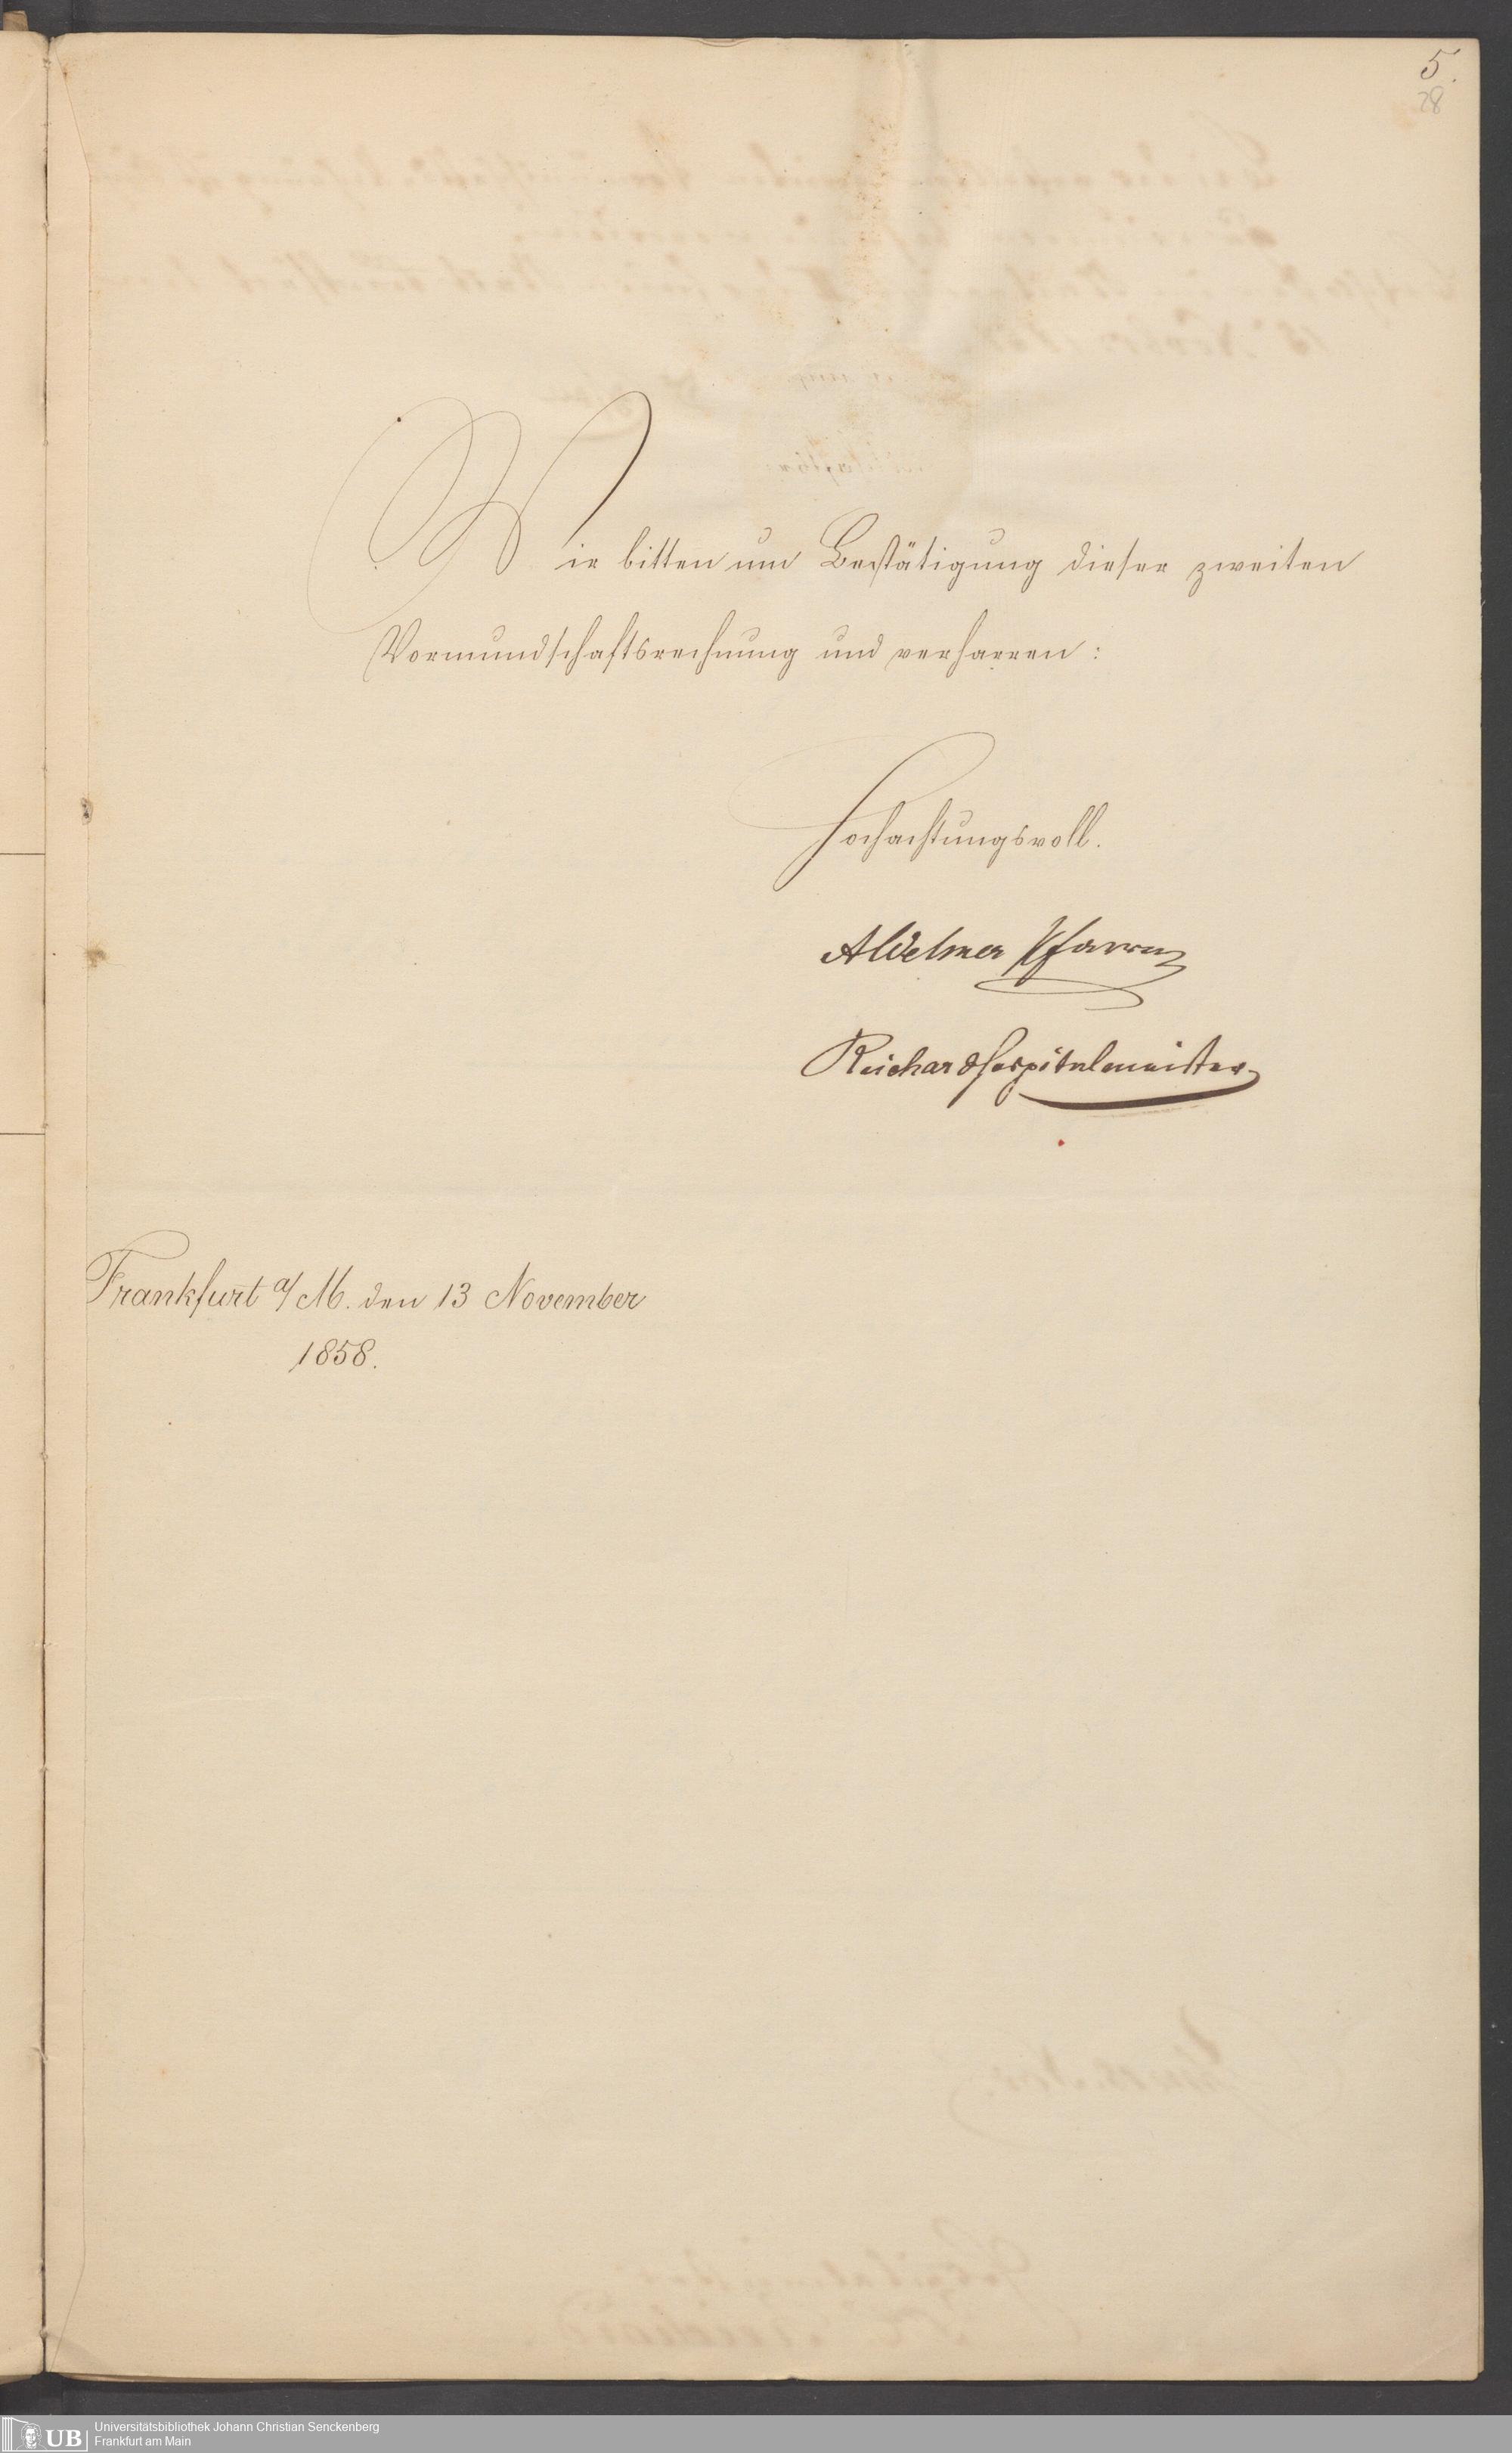 5.
28
Wir bitten um Bestätigung dieser zweiten
Vormundschaftsrechnung und verharren:
Hochachtungsvoll.
Aldelmer Pfarrer
Reichard Hospitalmeister
Frankfurt a/M. den 13 November
1858.
UB
Universitätsbibliothek Johann Christian Senckenberg
Frankfurt am Main